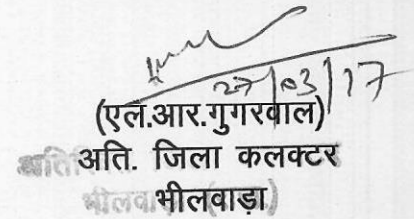 27/03/17
(एल.आर.गुगरवाल)
अति. जिला कलक्टर
भीलवाड़ा